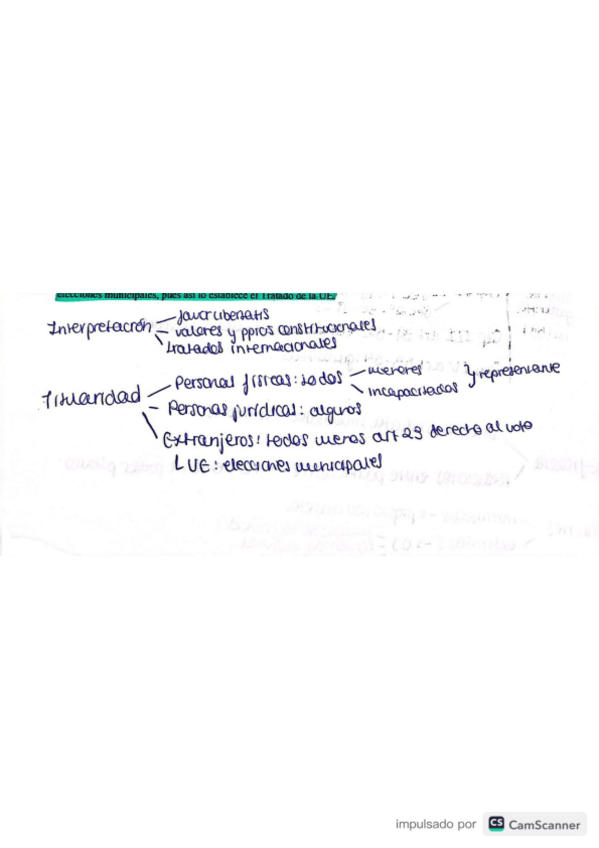 elecciones municipales, pues así lo establece el Tratado de la UE.
Interpretación
favor libertatis
valores y ppios constitucionales
tratados internacionales
Titularidad
Personas físicas: todos
menores
incapacitados
} representante
Personas jurídicas: algunos
Extranjeros: todos menos art 23 derecho al voto
UE: elecciones municipales
impulsado por CS CamScanner